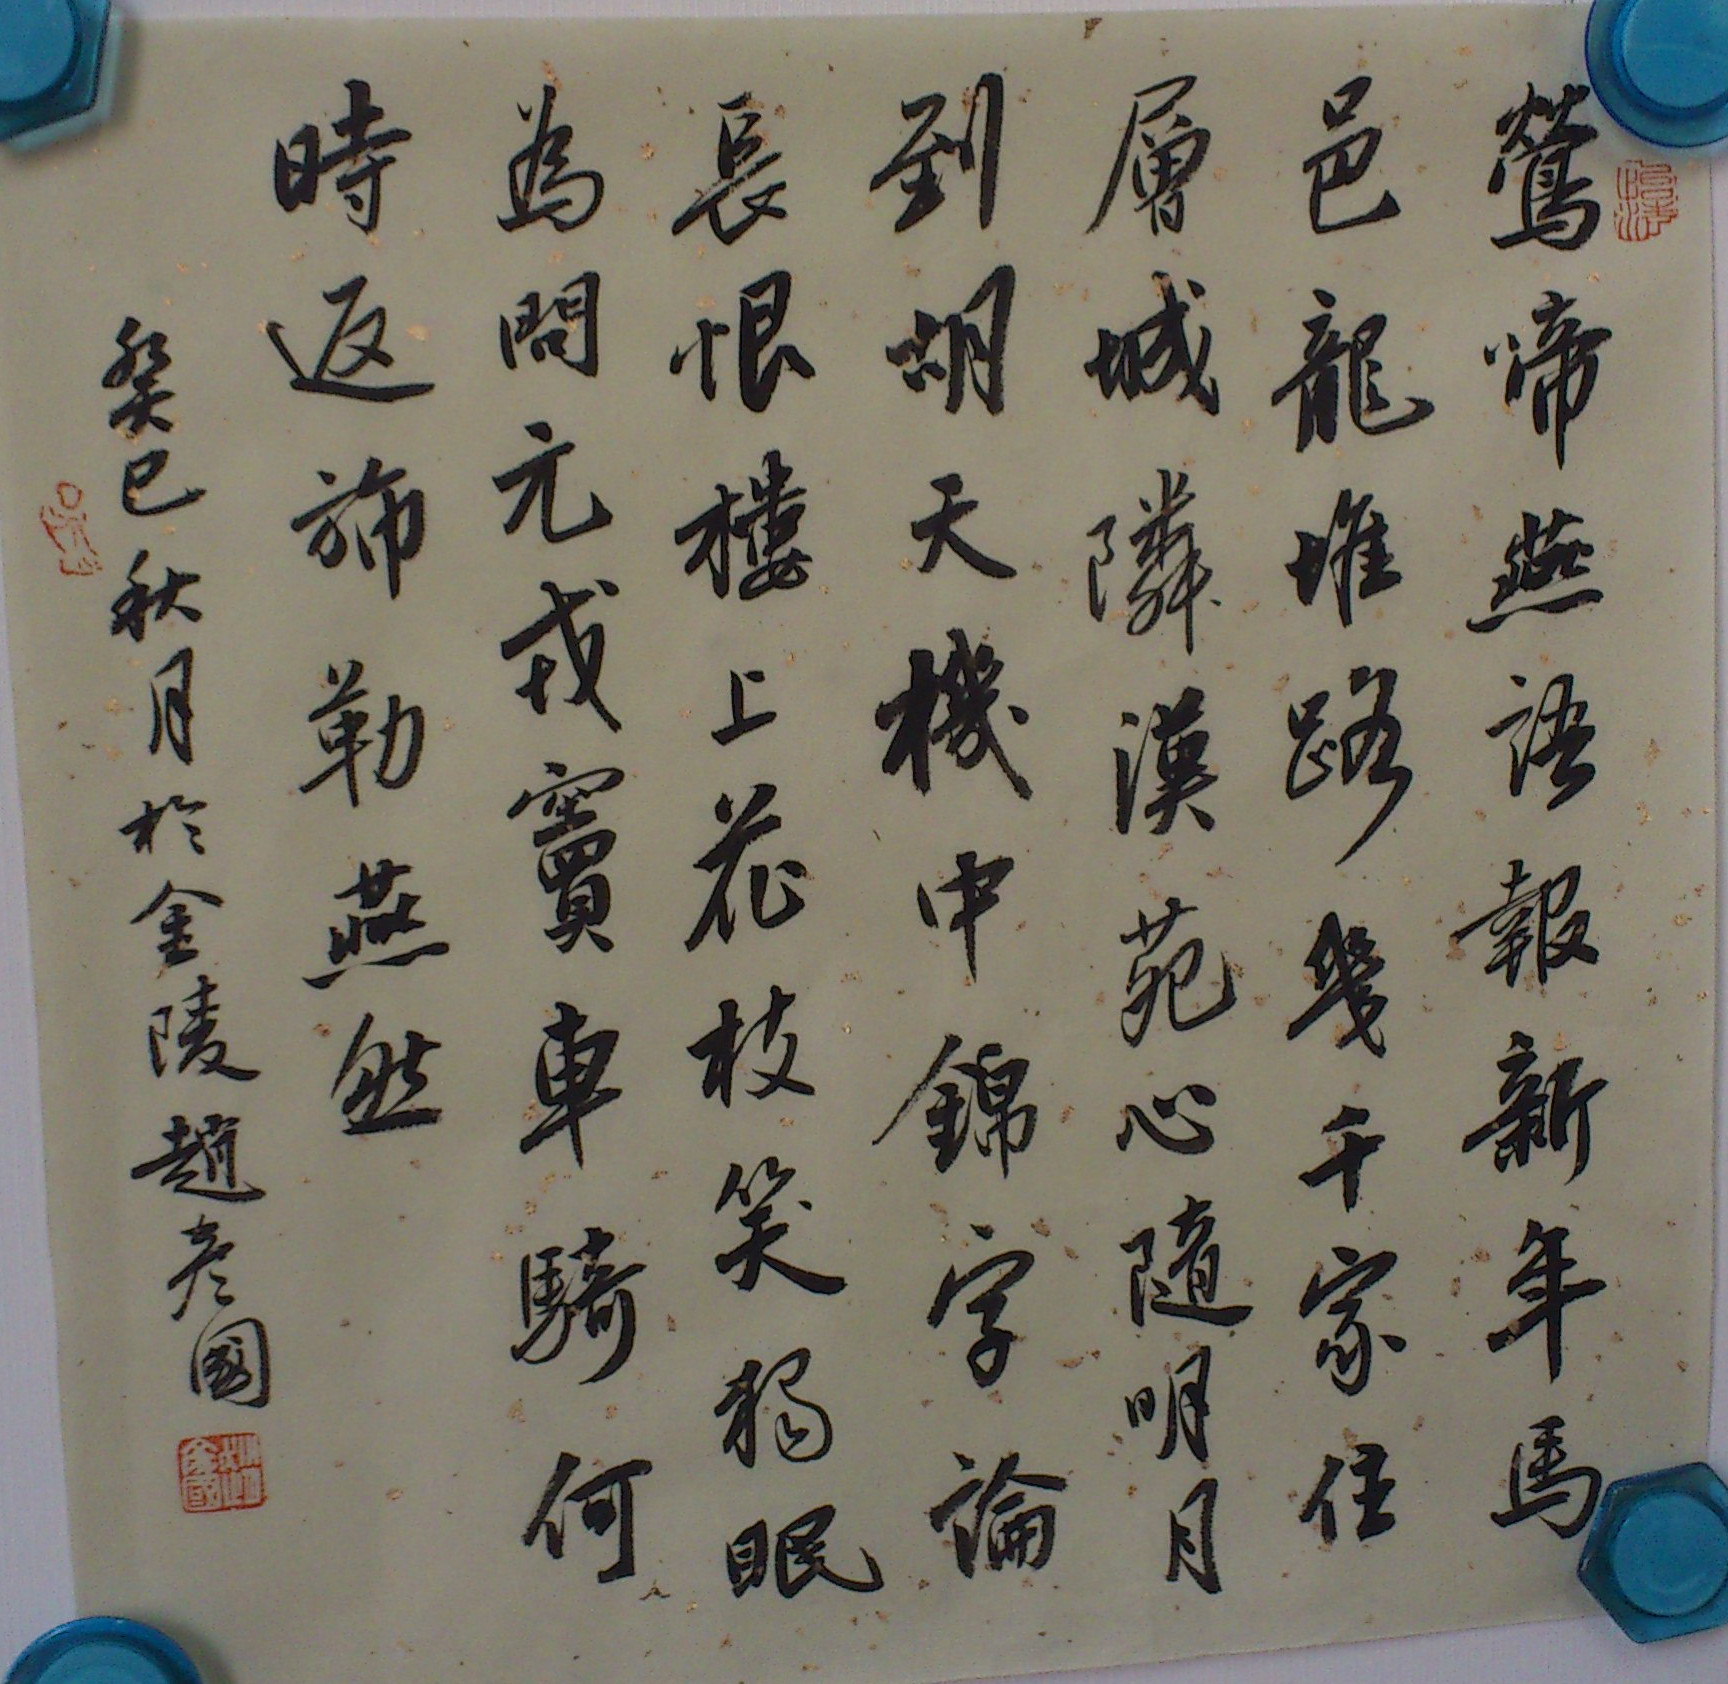 鶯啼燕語報新年馬
邑龍堆路幾千家住
層城隣漢苑心隨明月
到胡天機中錦字論
長恨樓上花枝笑獨眠
為問元戎竇車騎何
時返斾勒燕然
癸巳秋月於金陵趙彥國